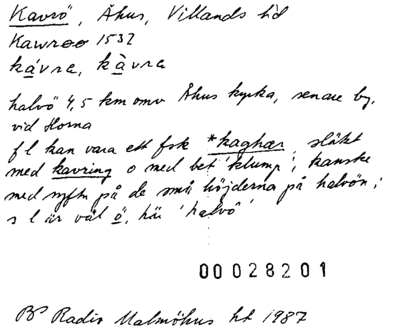 Kavrö, Åhus, Villands hd
Kawroo 1532
kávra, kàvra
halvö 4,5 km onv Åhus kyrka, senare by,
vid Horna
f l kan vara ett fsk *kaghær, släkt
med kavring o med bet 'klump', kanske
med syftn på de små höjderna på halvön;
s l är väl ö, här 'halvö'
00028201
BP Radio Malmöhus ht 1987